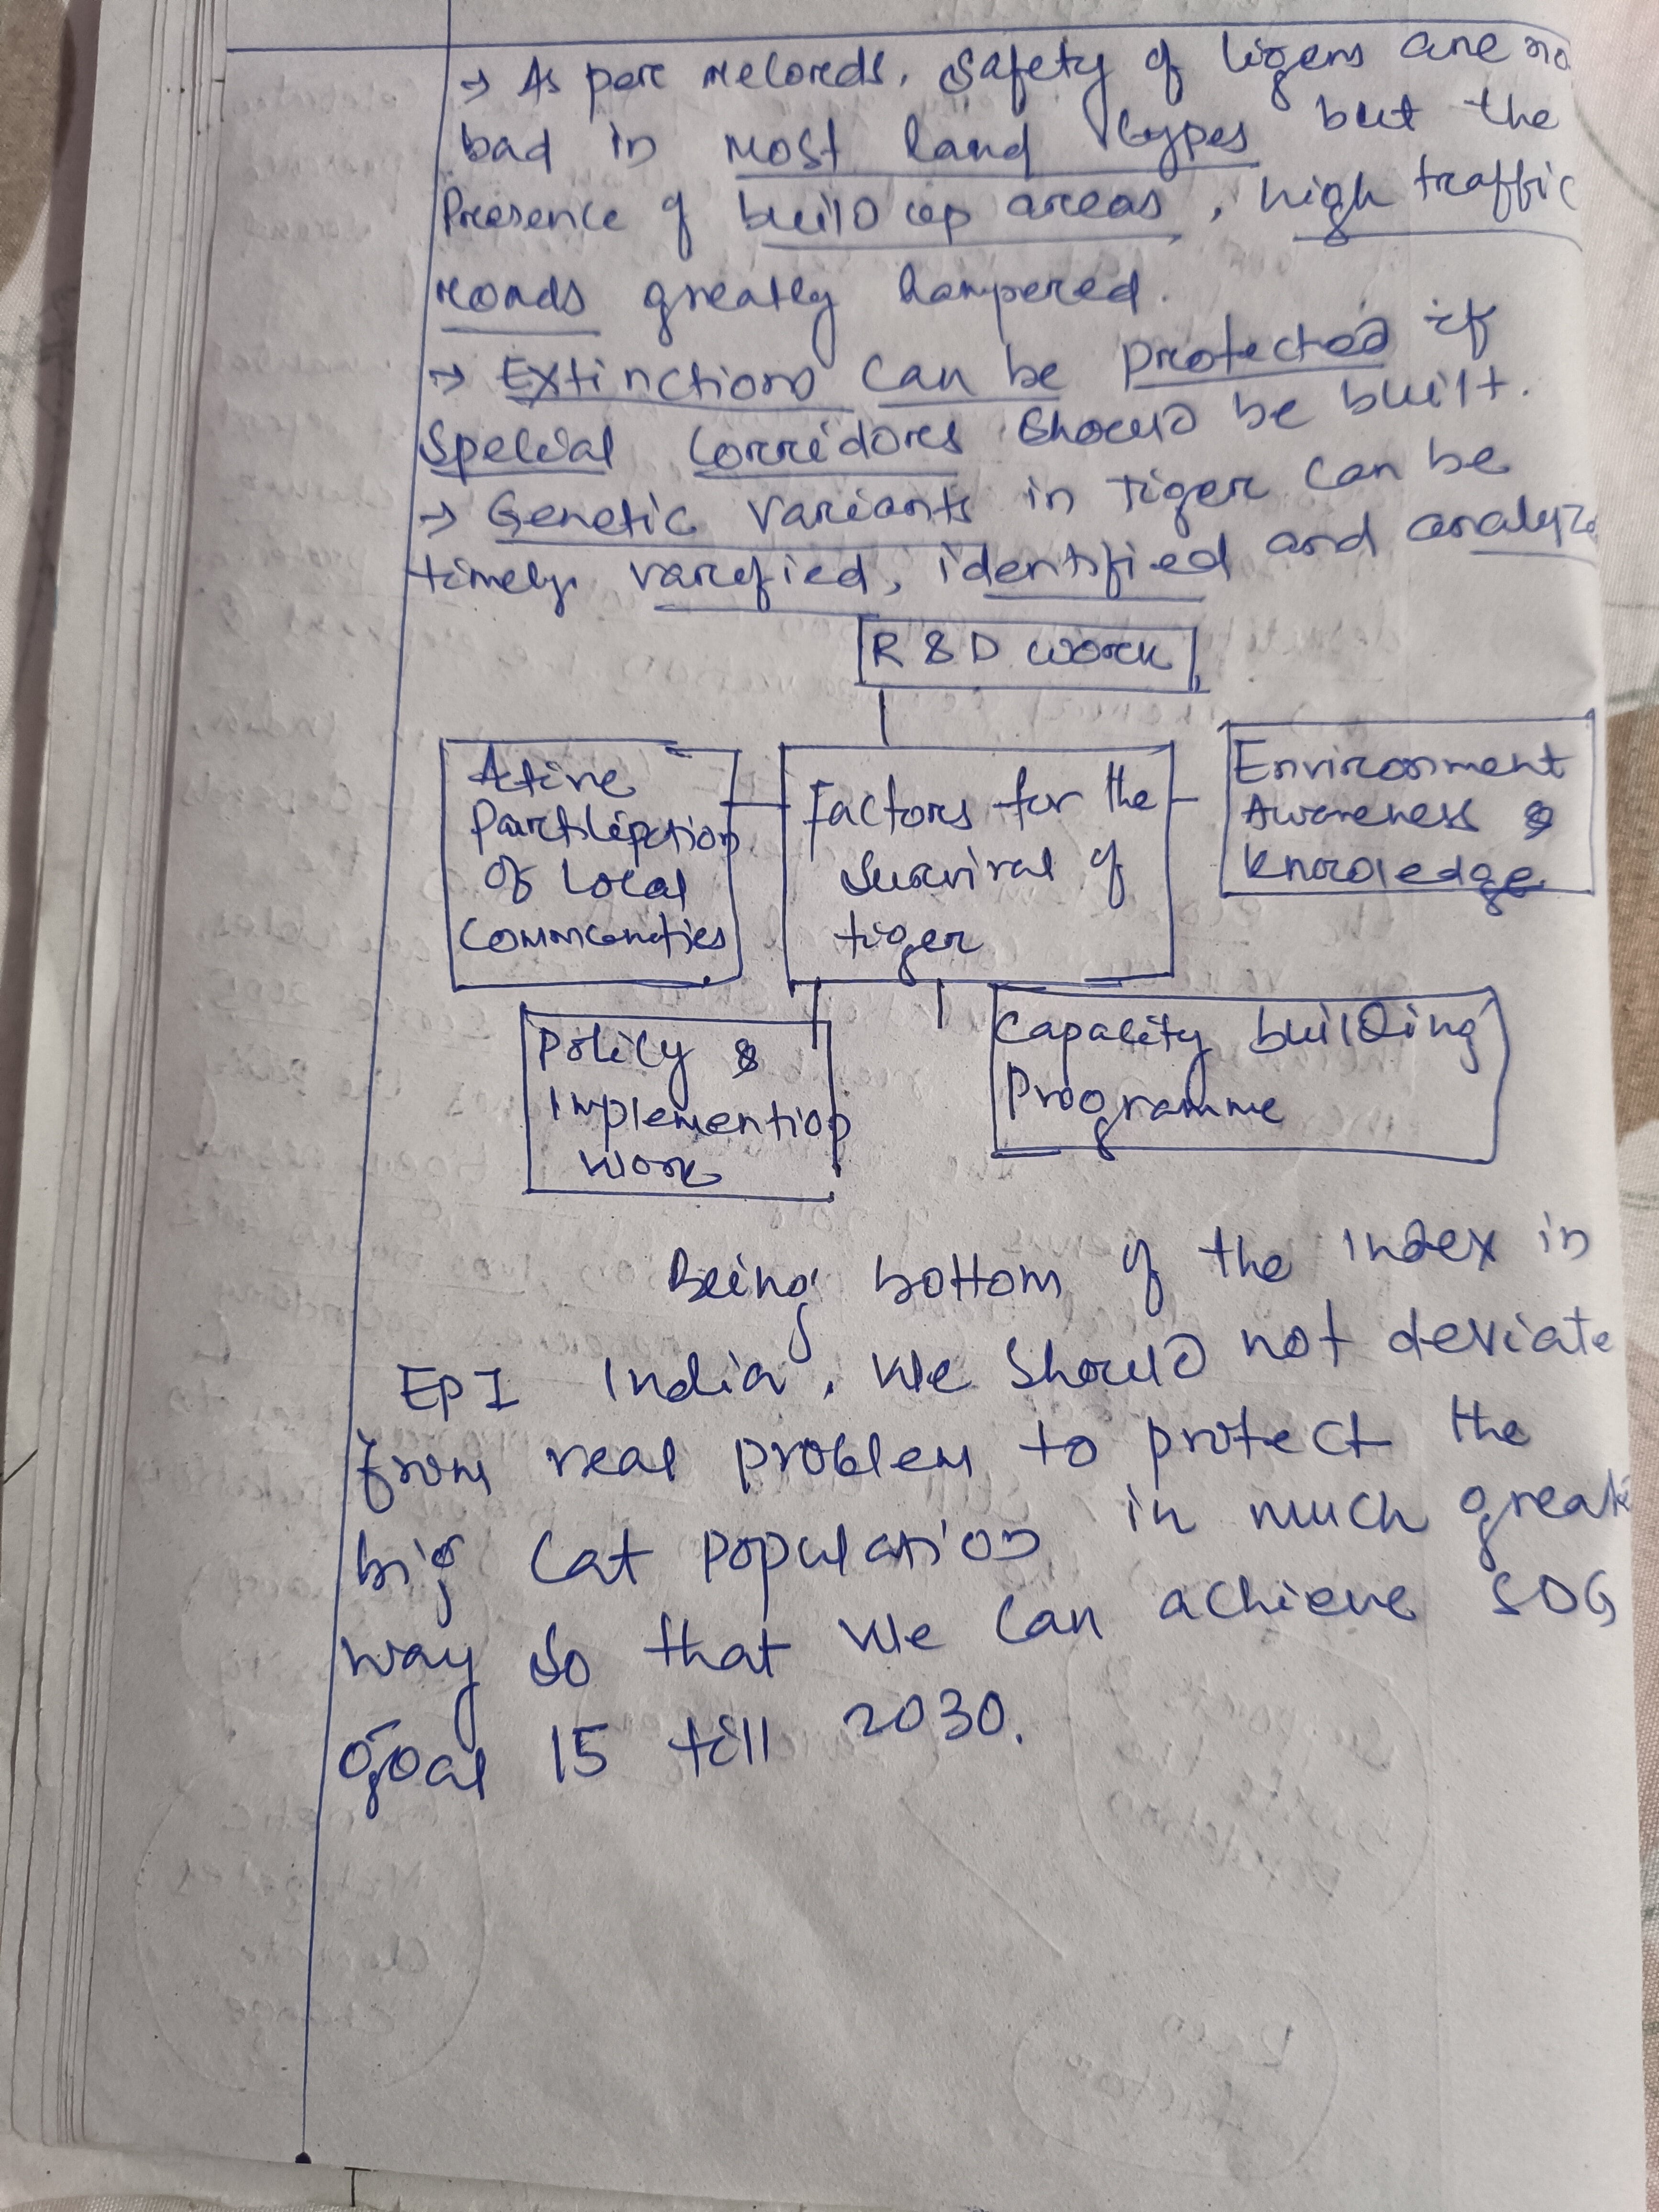 → As per records, safety of tigers are no
bad in most land types but the
Presence of build up areas, high traffic
roads greatly hampered.
→ Extinctions can be protected if
Special Corridores should be built.
→ Genetic variants in tiger can be
timely varefied, identified and analyze
R & D work
Active
Participation
of Local
Communities
Factors for the
survival of
tiger
Environment
Awareness &
knowledge
Policy &
Implemention
work
Capacity building
Programme
Being bottom of the index in
EPI India, we should not deviate
from real problem to protect the
big cat population in much great
way so that we can achieve SDG
goal 15 till 2030.